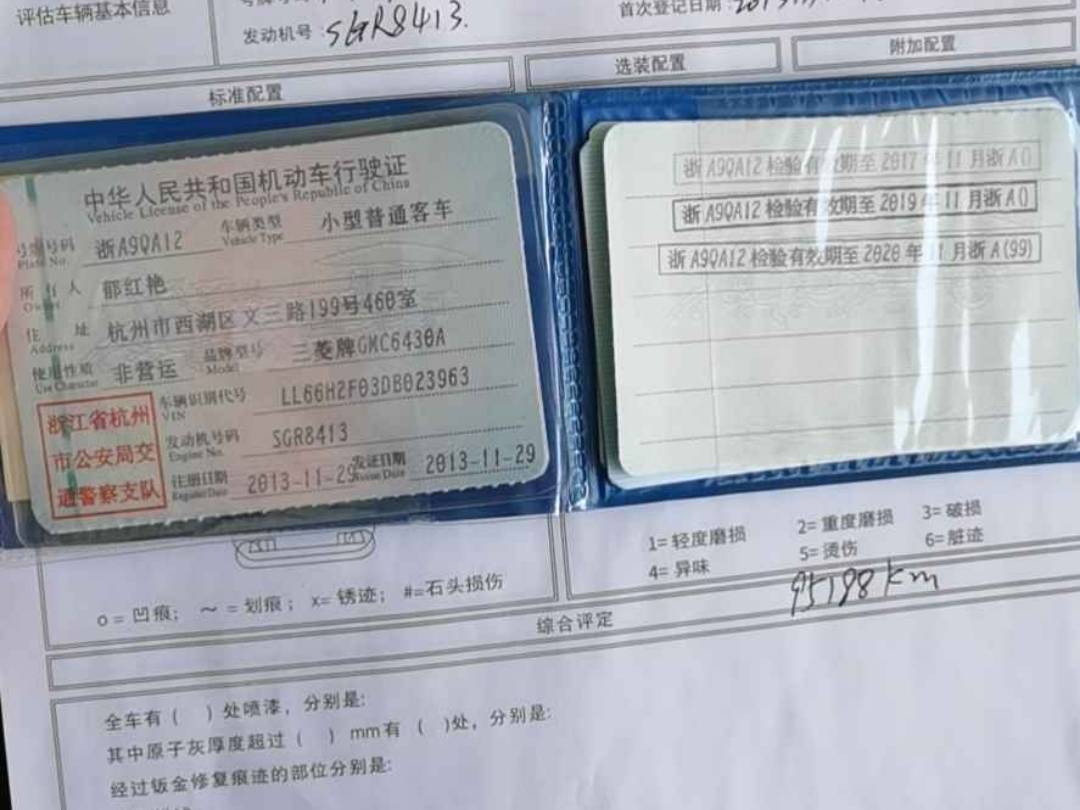 评估车辆基本信息
发动机号: SGR8413.
首次登记日期:
标准配置
选装配置
附加配置
中华人民共和国机动车行驶证
Vehicle License of the People's Republic of China
号牌号码 浙A9QA12 车辆类型 小型普通客车
Plate No. Vehicle Type
所有人 郜红艳
Owner
住址 杭州市西湖区文三路199号460室
Address
使用性质 非营运 品牌型号 三菱牌GMC6430A
Use Character Model
浙江省杭州
市公安局交
通警察支队
车辆识别代号 LL66H2F03DB023963
VIN
发动机号码 SGR8413
Engine No.
注册日期 2013-11-29 发证日期 2013-11-29
Register Date Issue Date
浙A9QA12 检验有效期至 2017年11月浙A()
浙A9QA12 检验有效期至 2019年11月浙A()
浙A9QA12 检验有效期至 2020年11月浙A(99)
o=凹痕; ~=划痕; x=锈迹; #=石头损伤
1=轻度磨损 2=重度磨损 3=破损
4=异味 5=烫伤 6=脏迹
95198km
综合评定
全车有( )处喷漆,分别是:
其中原子灰厚度超过( )mm有( )处,分别是:
经过钣金修复痕迹的部位分别是: